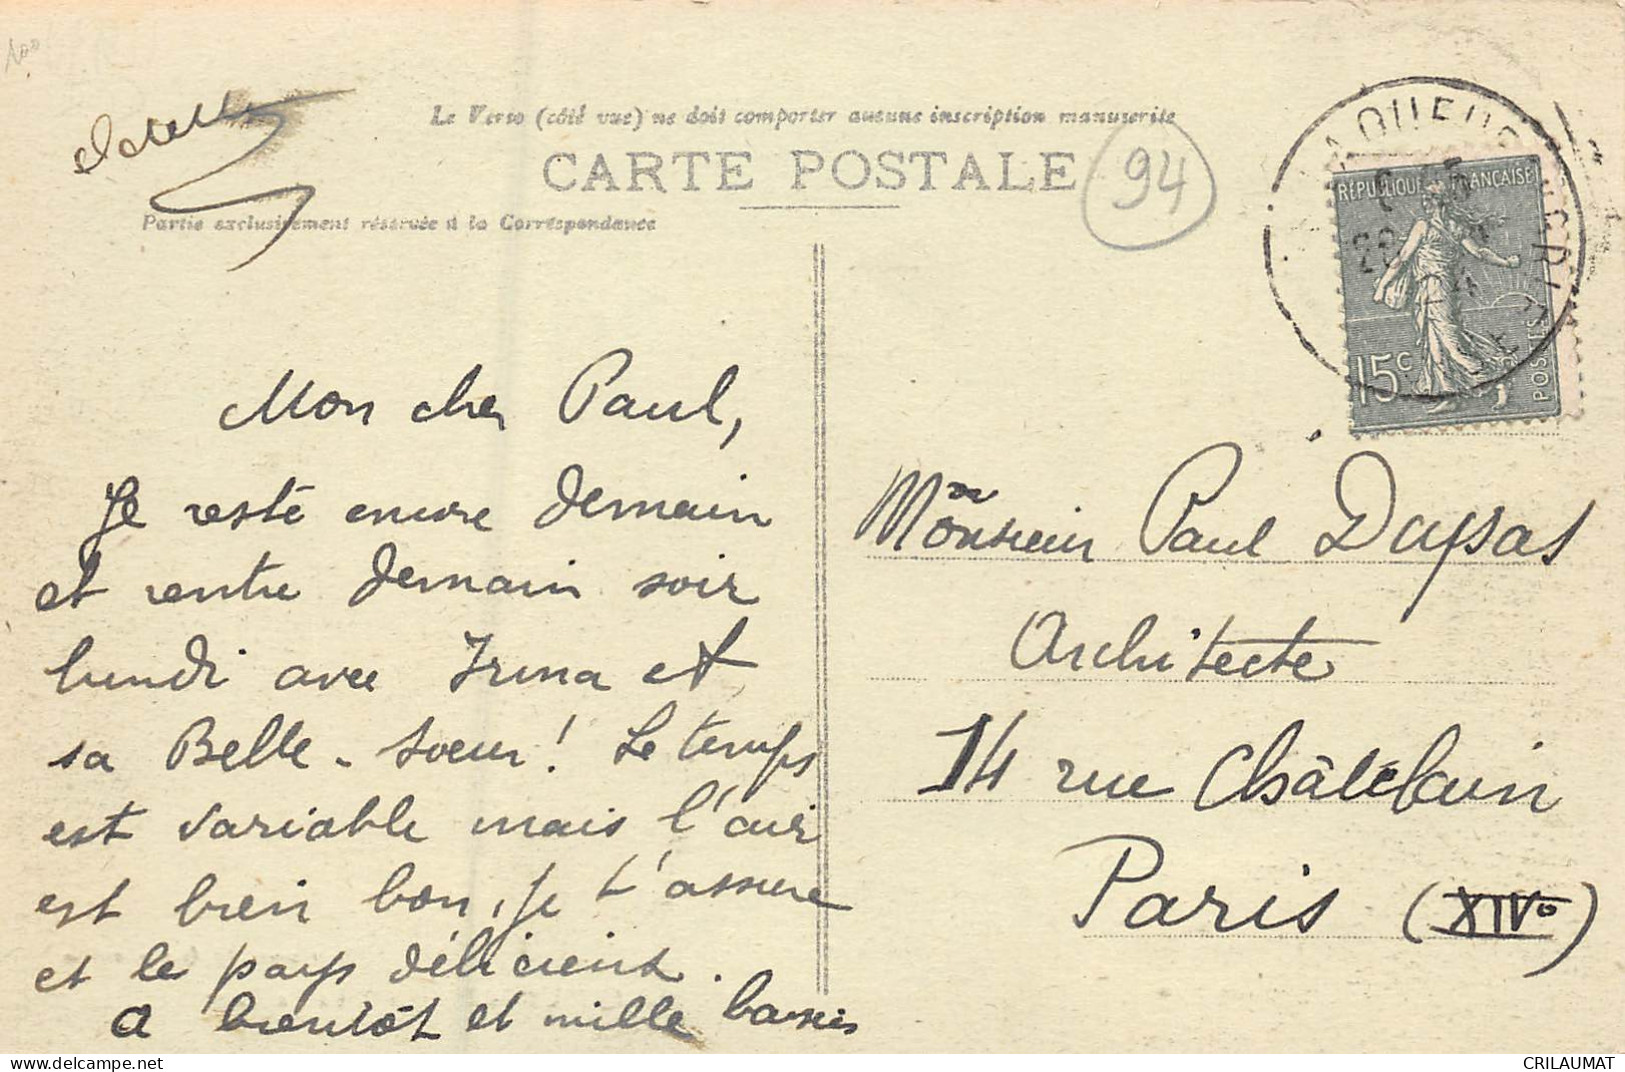 100
Le Verso (côté vue) ne doit comporter aucune inscription manuscrite
CARTE POSTALE
94
Partie exclusivement réservée à la Correspondance
RÉPUBLIQUE FRANÇAISE
15c
POSTES
Mon cher Paul,
Je reste encore demain
et rentre demain soir
lundi avec Irma et
sa Belle-Soeur! Le temps
est variable mais l'air
est bien bon, je t'assure
et le pays délicieux.
a bientôt et mille baisers
Monsieur Paul Dupas
Architecte
14 rue Châtelain
Paris (XIVe)
CRILAUMAT